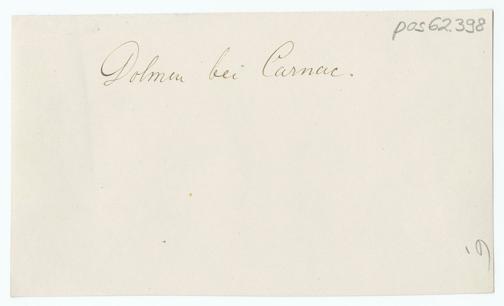 pos62.398
Dolmen bei Carnac.